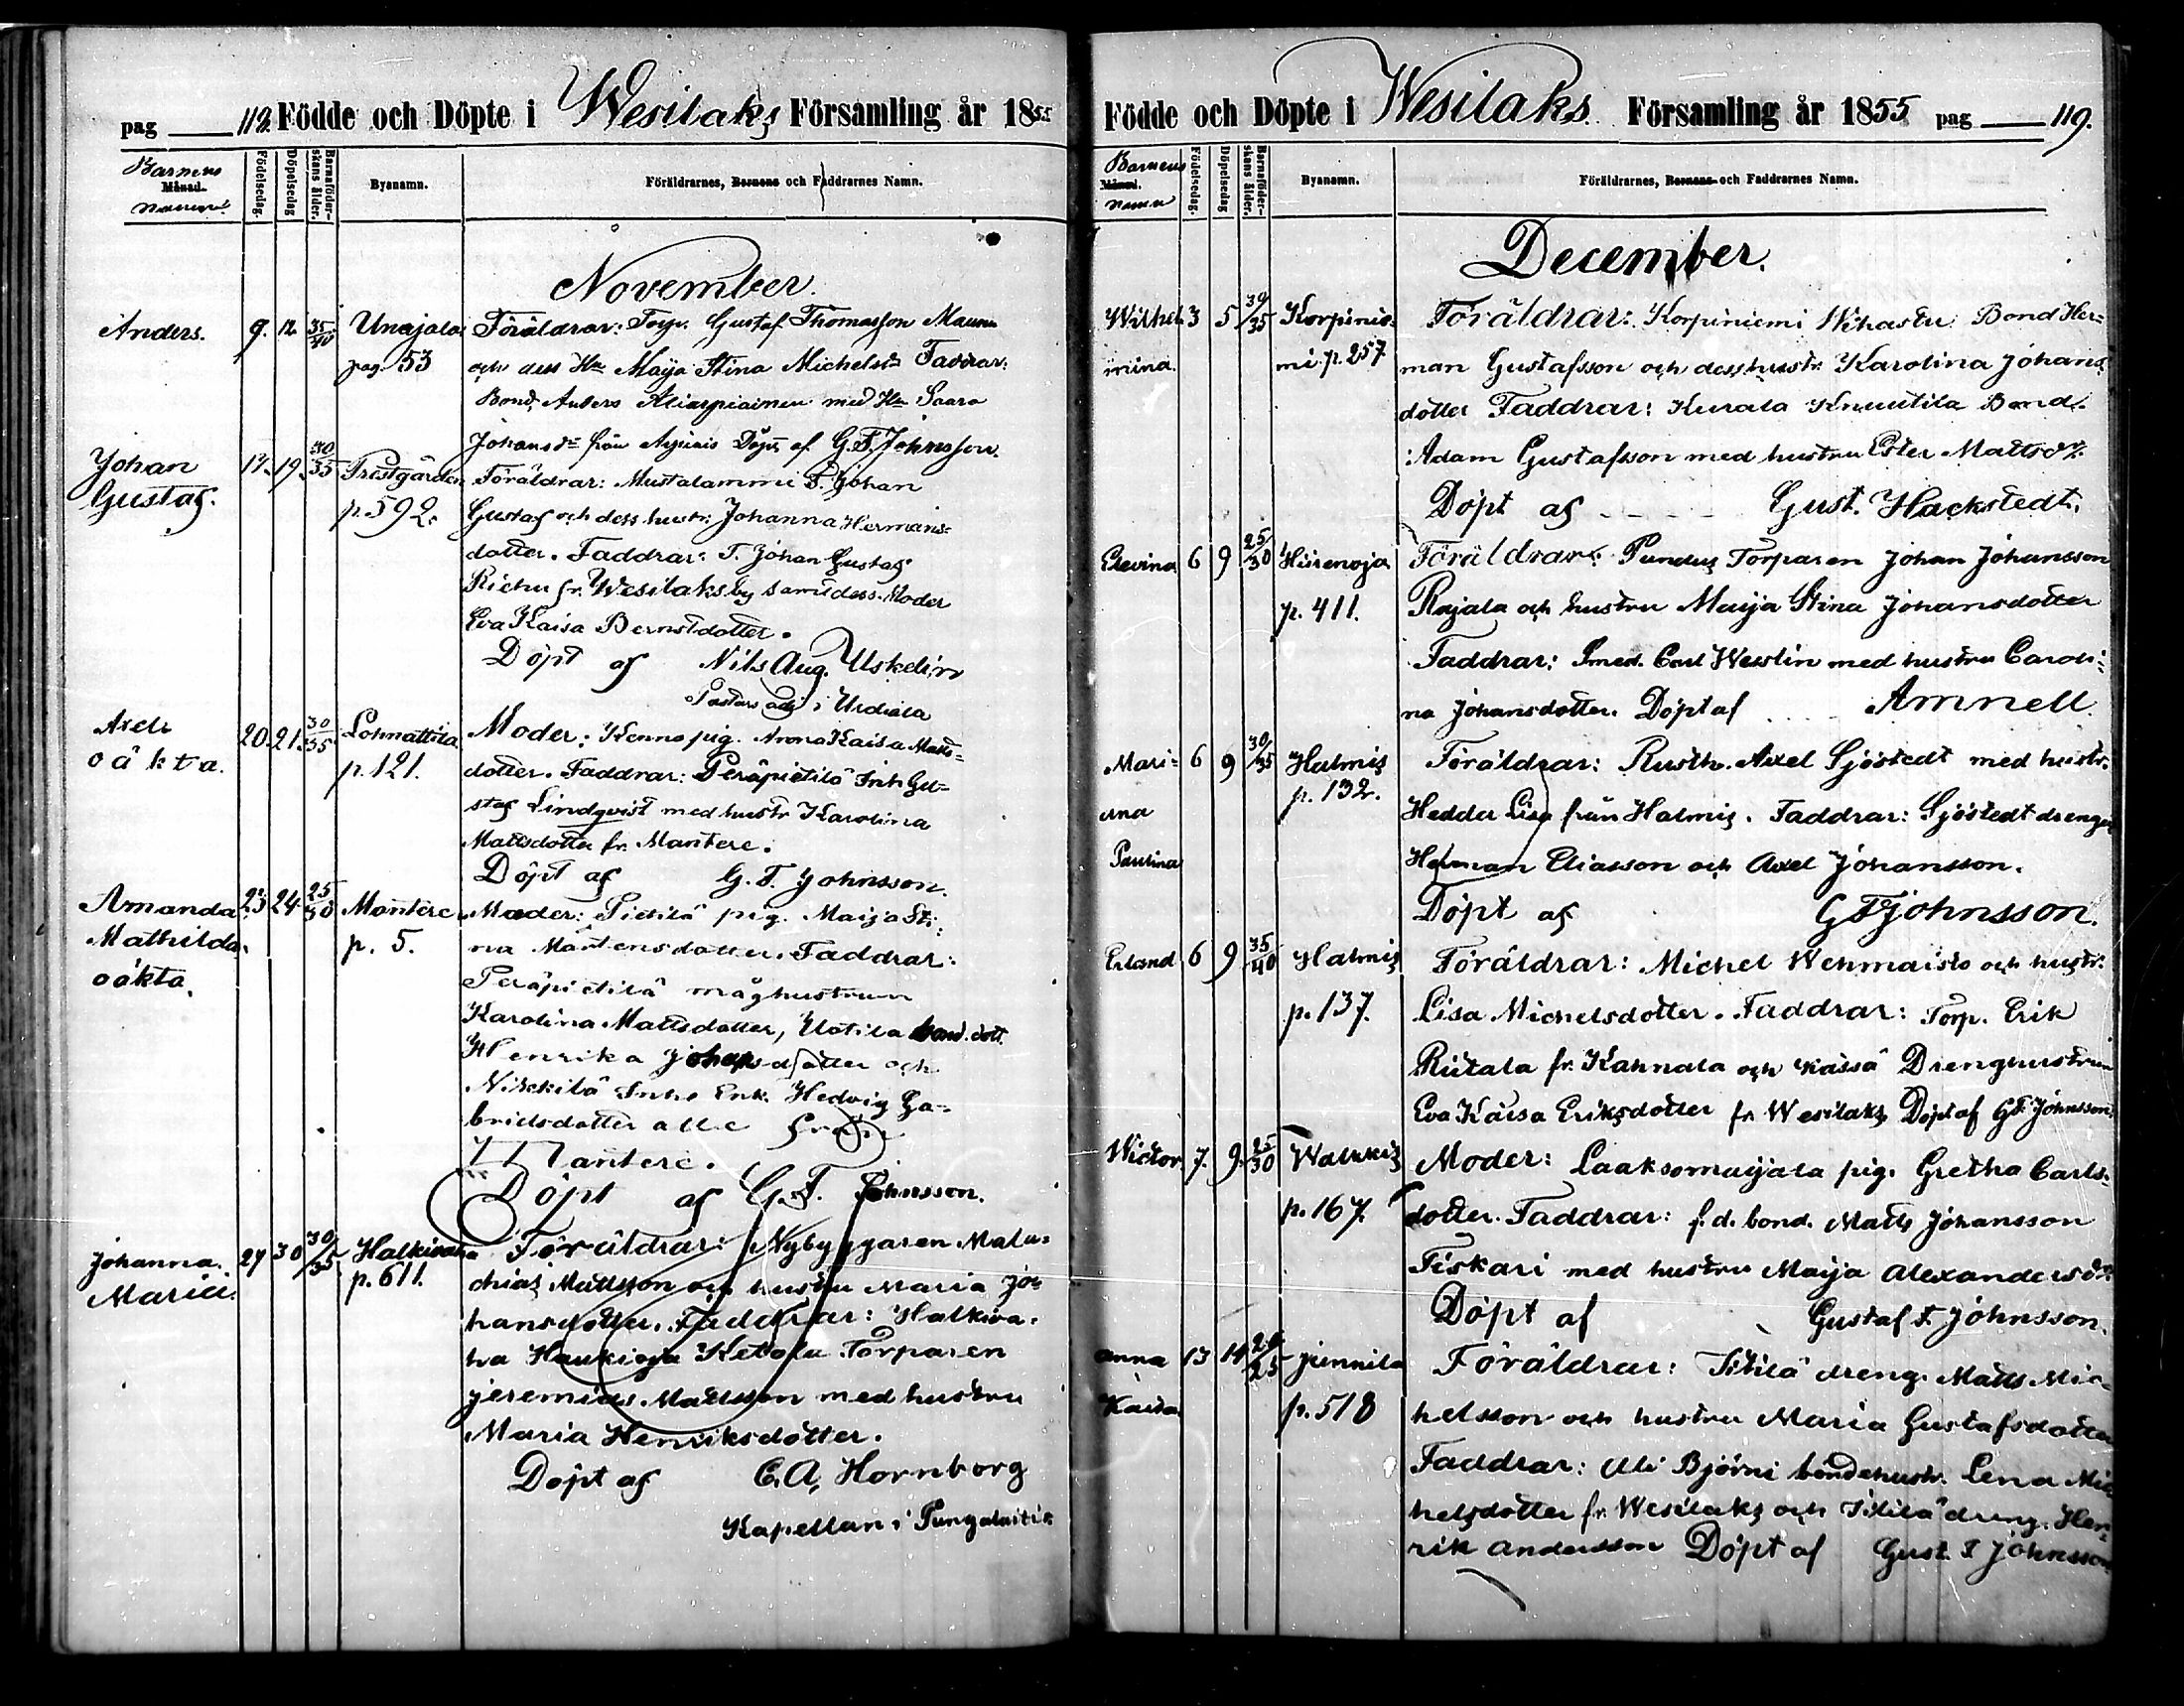 pag 118. Födde och Döpte i Wesilaks Församling år 1855
Barnens Månad. namn Födelsedag. Döpelsedag Barnaföderskans ålder. Byanamn. Föräldrarnes, Barnens och Faddrarnes Namn.
November.
Anders. 9. 12 35/40 Unajala Föräldrar: Torp. Gustaf Thomasson Maunu
pag. 53 och dess Hu Maija Stina Michelsdr Faddrar:
Bond. Anders med Hu Saara
Johansdr från Döpt af G. F. Johnsson.
Johan 17. 19. 30/35 Prestgården Föräldrar: Mustalammi T. Johan
Gustaf. p. 592. Gustaf och dess hustr. Johanna Hermans-
dotter. Faddrar: T. Johan Gustaf
Richu fr. Wesilaks by samt dess Moder
Eva Kaisa Berndtdotter.
Döpt af Nils Aug. Uskelin
Pastors adj i Urdiala
Axel 20. 21. 30/35 Lohnattila Moder: Kenno pig. Anna Kaisa Matts-
oäkta. p. 121. dotter. Faddrar: Peräpietilä Inh Gu-
staf Lindqvist med hustr Karolina
Mattsdotter fr. Mantere.
Döpt af G. F. Johnsson.
Amanda 23 24 25/30 Mantere Moder: Pietilä pig. Maija Sti-
Mathilda p. 5. na Mårtensdotter. Faddrar:
oäkta. Peräpietilä måghustrun
Karolina Mattsdotter, Uotila bond. dott.
Henrika Johansdotter och
Nikkilä Inhs Enk. Hedvig Ga-
brielsdotter alle från
Mantere.
Döpt af G. F. Johnsson.
Johanna 27 30 30/35 Halkivaha Föräldrar: Nybyggaren Mala-
Maria. p. 611. chias Mattsson och hustru Maria Jo-
hansdotter. Faddrar: Halkiva-
ha Haukioja Ketola Torparen
Jeremias Mattsson med hustru
Maria Henriksdotter.
Döpt af C. A. Hornborg
Kapellan i Pungalaitio
Födde och Döpte i Wesilaks. Församling år 1855 pag 119.
Barnens Månad. namn Födelsedag. Döpelsedag Barnaföderskans ålder. Byanamn. Föräldrarnes, Barnens och Faddrarnes Namn.
December.
Wilhel- 3 5 30/35 Korpinie- Föräldrar: Korpiniemi Wihastu Bond Her-
mina. mi p. 257 man Gustafsson och dess hustr. Karolina Johans-
dotter Faddrar: Kurala Knuutila Bond.
Adam Gustafsson med hustru Ester Mattsdr.
Döpt af Gust. Hackstedt.
Elevina 6 9 25/30 Hiirenoja Föräldrar: Pundus Torparen Johan Johansson
p. 411. Rajala och hustru Maija Stina Johansdotter
Faddrar: Smed. Carl Weslin med hustru Caroli-
na Johansdotter. Döpt af Amnell.
Mari- 6 9 30/35 Halmis Föräldrar: Rusth. Axel Sjöstedt med hustr.
ana p. 132. Hedda Lisa från Halmis. Faddrar: Sjöstedt drengar
Paulina Herman Eliasson och Axel Johansson.
Döpt af G F Johnsson.
Erland 6 9 35/40 Halmis Föräldrar: Michel Wehmaisto och hustr.
p. 137. Lisa Michelsdotter. Faddrar: Torp. Erik
Riitala fr. Kahnala och Kässä Drenghustrun
Eva Kaisa Eriksdotter fr. Wesilaks Döpt af G F Johnsson
Wictor 7. 9. 25/30 Walkkis Moder: Laaksomaijala pig. Gretha Carls-
p. 167. dotter. Faddrar: f. d. bond. Matts Johansson
Fiskari med hustru Maija Alexandersdr
Döpt af Gustaf F. Johnsson.
Anna 13 14 20/25 Junnila Föräldrar: Titilä dreng. Matts Mic-
Kaisa p. 518 helsson och hustru Maria Gustafsdotter
Faddrar: Ali Björni bondehustr. Lena Mic-
helsdotter fr. Wesilaks och Titilä dreng. Hen-
rik Andersson Döpt af Gust. F Johnsson